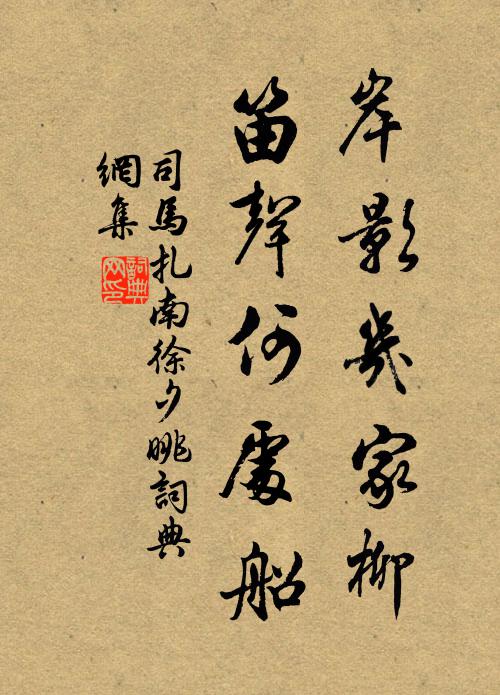 岸影幾家柳
笛聲何處船
司馬扎南徐夕眺詞典
網集
詞典
网印